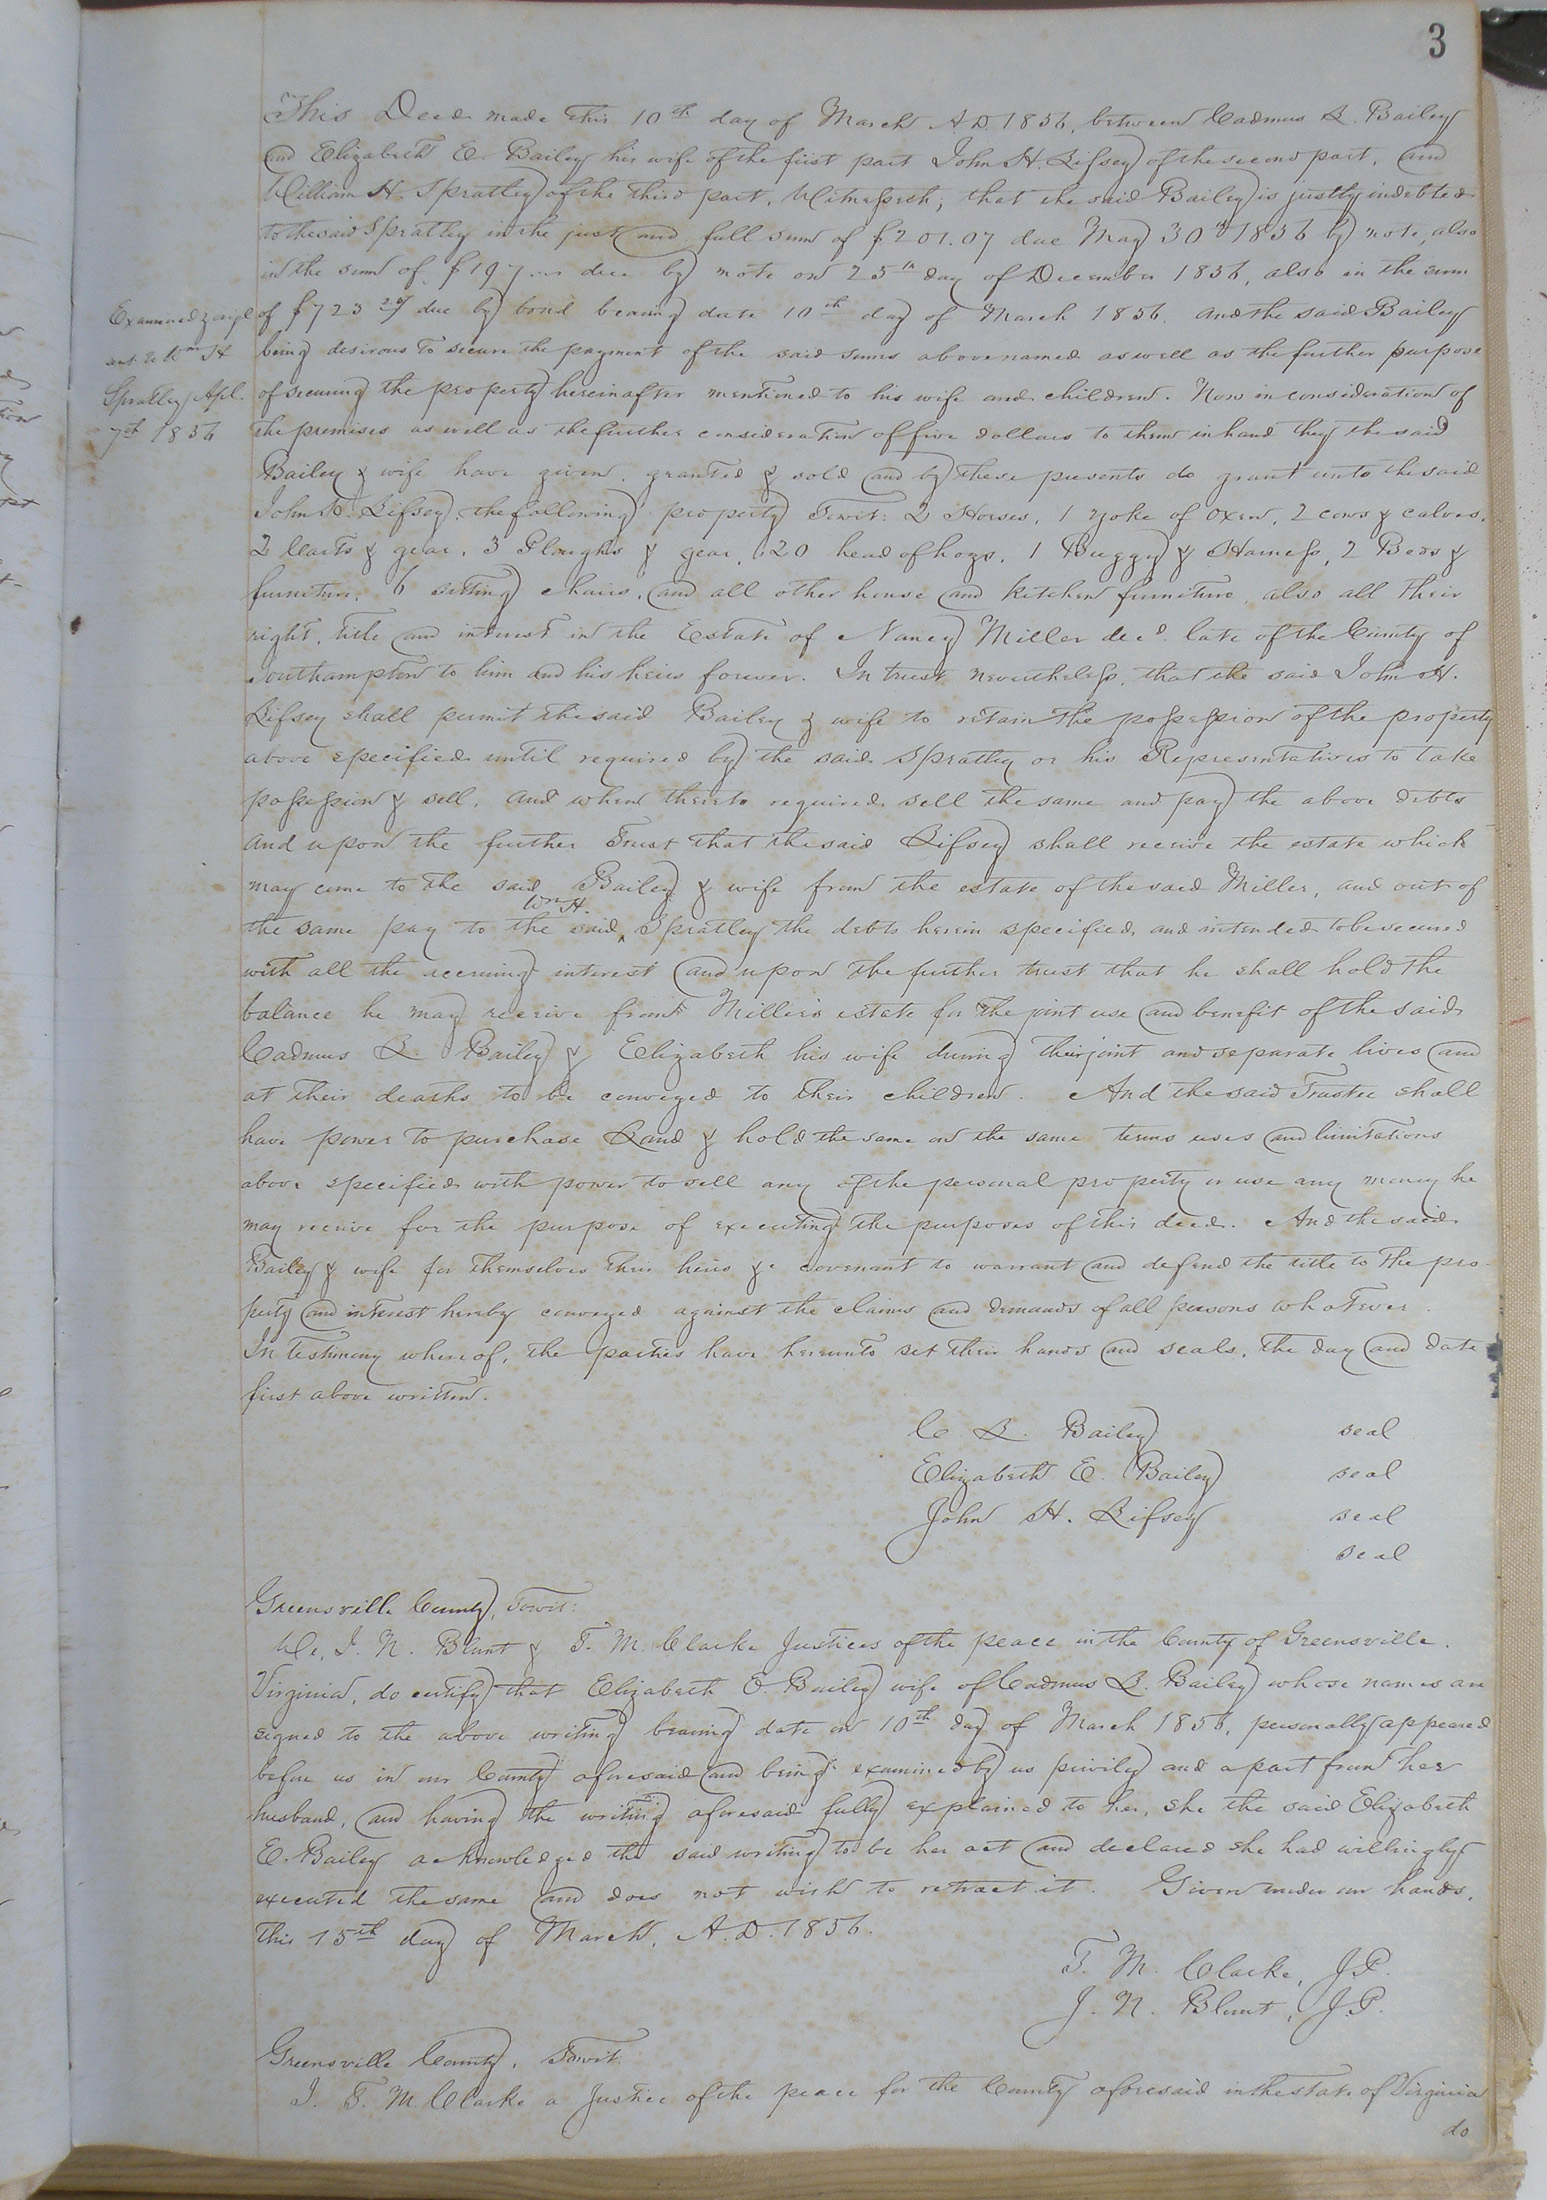 3
This Deed made this 10th day of March A.D. 1856, between Cadmus L. Bailey
and Elizabeth E. Bailey his wife of the first part John H. Lifsey of the second part, and
William H. Spratley of the third part, Witnesseth; that the said Bailey is justly indebted
to the said Spratley in the just and full sum of $201.07 due May 30th 1856 by note, also
in the sum of $197 due by note on 25th day of December 1856, also in the sum
of $723 29 due by bond bearing date 10th day of March 1856. and the said Bailey
being desirous to secure the payment of the said sums above named as well as the further purpose
of securing the property hereinafter mentioned to his wife and children. Now in consideration of
the premises as well as the further consideration of five dollars to them in hand they the said
Bailey & wife have given, granted & sold and by these presents do grant unto the said
John H. Lifsey, the following property Towit: 2 Horses, 1 yoke of oxen, 2 cows & calves,
2 Carts & gear, 3 Ploughs & gear, 20 head of hogs, 1 Buggy & Harness, 2 Beds &
furniture, 6 sitting chairs, and all other house and kitchen furniture, also all their
right, title and interest in the Estate of Nancy Miller decd. late of the County of
Southampton to him and his heirs forever. In trust nevertheless, that the said John H.
Lifsey shall permit the said Bailey & wife to retain the possession of the property
above specified until required by the said Spratley or his Representatives to take
possession & sell, and when thereto required sell the same and pay the above debts
and upon the further Trust that the said Lifsey shall receive the estate which
may come to the said Bailey & wife from the estate of the said Miller, and out of
the same pay to the said Wm H. Spratley the debts herein specified, and intended to be secured
with all the accruing interest and upon the further trust that he shall hold the
balance he may receive from Miller's estate for the joint use and benefit of the said
Cadmus L. Bailey & Elizabeth his wife during their joint and separate lives and
at their deaths to be conveyed to their children. And the said Trustee shall
have power to purchase Land & hold the same on the same terms uses and limitations
above specified with power to sell any of the personal property or use any money he
may receive for the purpose of executing the purposes of this deed. And the said
Bailey & wife for themselves their heirs &c covenant to warrant and defend the title to the pro-
perty and interest hereby conveyed against the claims and demands of all persons whatever.
In testimony whereof, the parties have hereunto set their hands and seals, the day and date
first above written.
Examined & angl
sent to Wm H
Spratley Apl.
7th 1856
C L. Bailey seal
Elizabeth E. Bailey seal
John H. Lifsey seal
seal
Greensville County, Towit:
We, J. N. Blunt & T. M. Clarke Justices of the peace in the County of Greensville,
Virginia, do certify that Elizabeth E. Bailey wife of Cadmus L. Bailey whose names are
signed to the above writing bearing date on 10th day of March 1856, personally appeared
before us in our County aforesaid and being examined by us privily and apart from her
husband, and having the writing aforesaid fully explained to her, she the said Elizabeth
E. Bailey acknowledged the said writing to be her act and declared she had willingly
executed the same and does not wish to retract it. Given under our hands,
this 15th day of March, A.D. 1856.
T. M. Clarke, J.P.
J. N. Blunt, J.P.
Greensville County, Towit.
I. T. M. Clarke a Justice of the peace for the County aforesaid in the state of Virginia
do